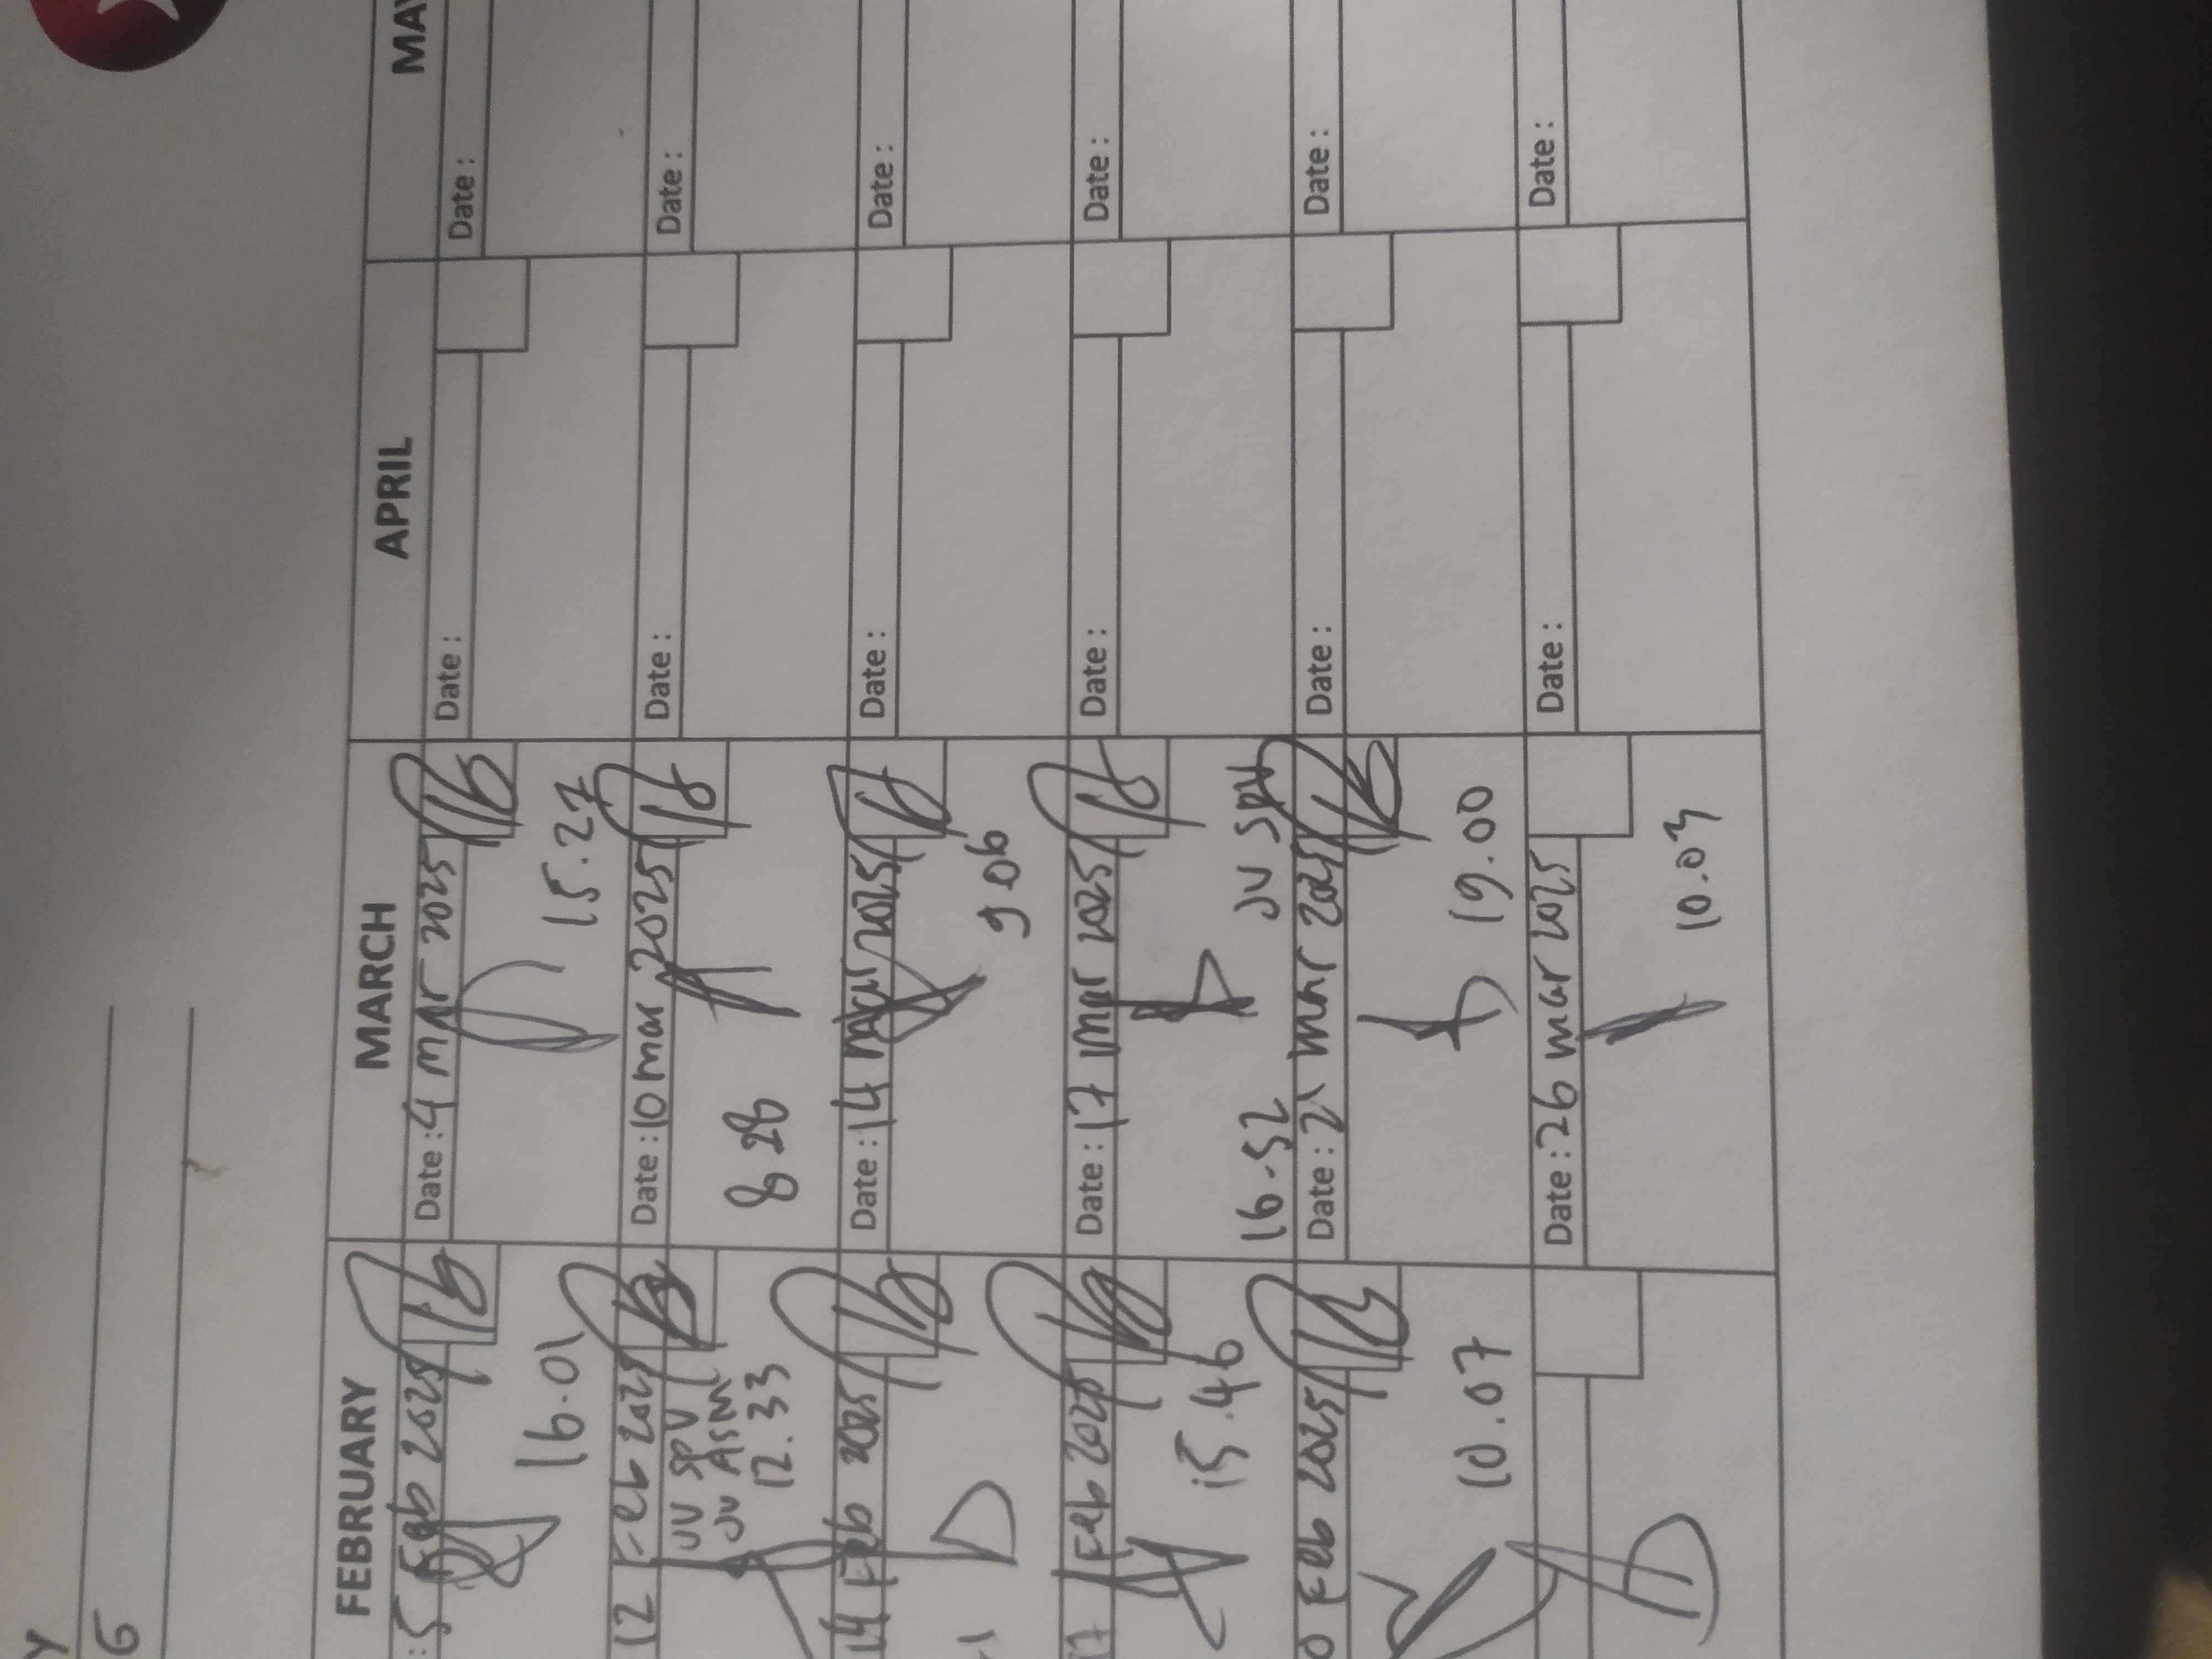 Y
5
FEBRUARY
MARCH
APRIL
MAY
: 5 Feb 2025
16.01
Date : 4 mar 2025
15.27
Date :
Date :
12 Feb 2025
JV SPV
JV ASM
12.33
Date : 10 mar 2025
8 26
Date :
Date :
14 Feb 2025
Date : 14 mar 2025
9 06
Date :
Date :
17 Feb 2025
15.46
Date : 17 mar 2025
JV SPV
16.52
Date :
Date :
0 Feb 2025
10.07
Date : 21 mar 2025
19.00
Date :
Date :
Date : 26 mar 2025
10.03
Date :
Date :